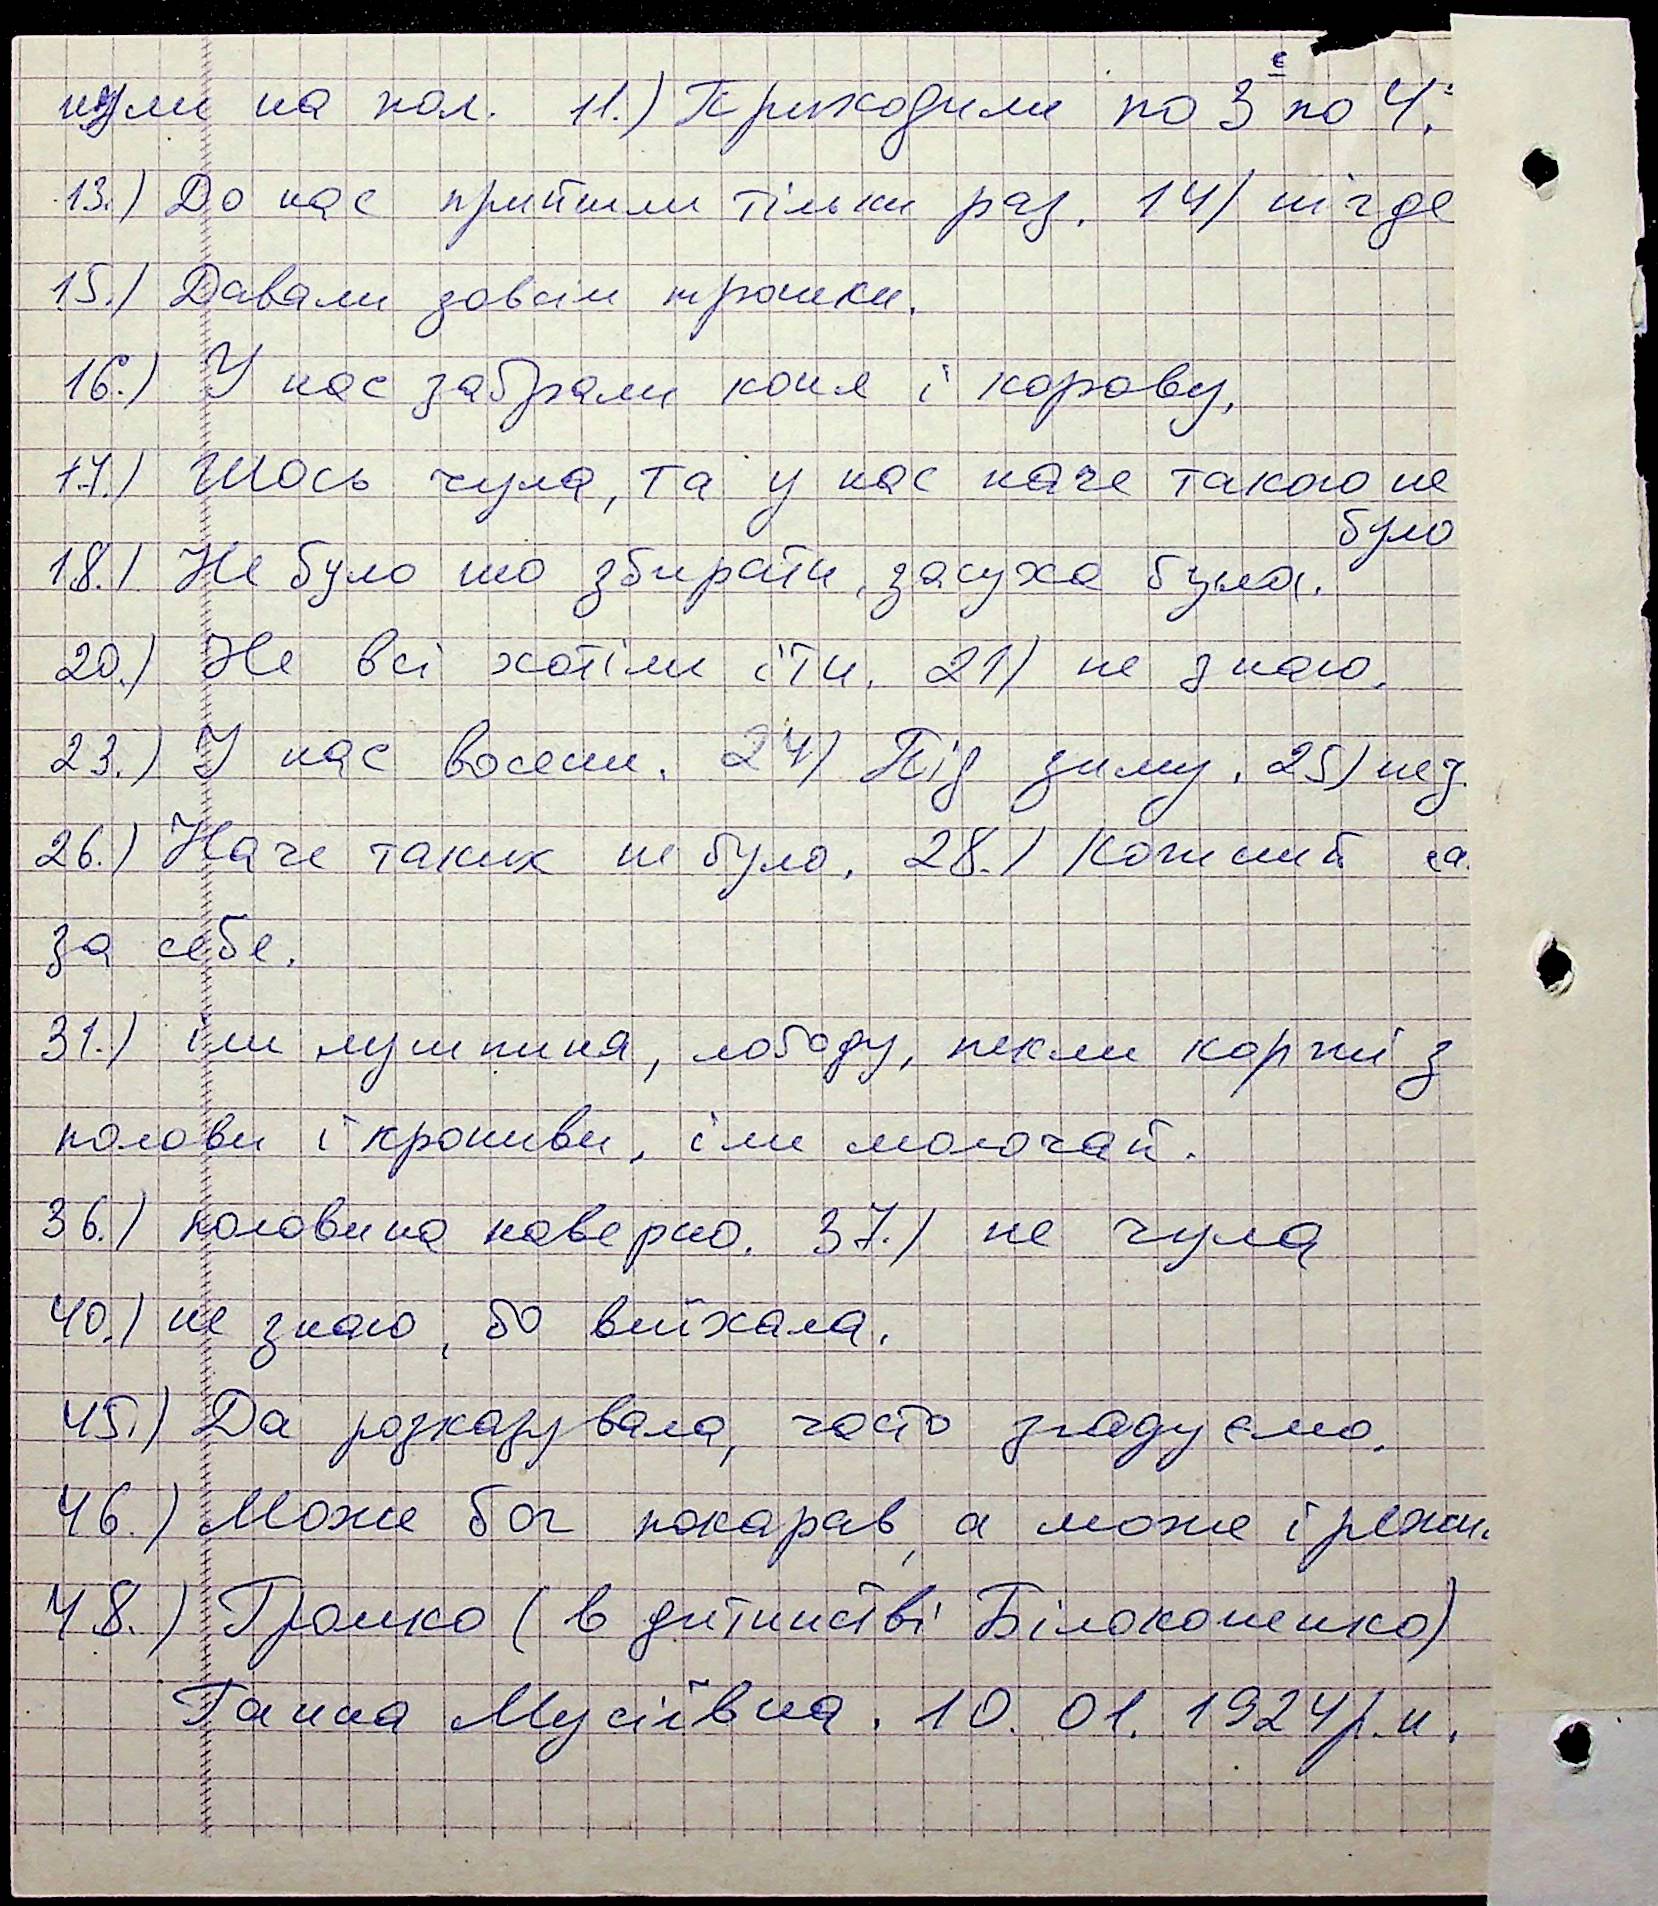 нули на пол. 11.) Приходили по 3 є по 4.
13.) До нас прийшли тільки раз. 14) нігде
15.) Давали зовсім трошки.
16.) У нас забрали коня і корову.
17.) Шось чула, та у нас наче такого не
було
18.) Не було шо збирати, засуха була.
20.) Не всі хотіли іти. 21) не знаю.
23.) У нас восени. 24) Під зиму. 25) нез.
26.) Наче таких не було. 28.) Кожний са.
за себе.
31.) їли лушпиня, лободу, пекли коржі з
полови і кропиви, їли молочай.
36.) половина наверно. 37.) не чула
40.) не знаю, бо виїхала.
45.) Да розказувала, часто згадуємо.
46.) Може бог покарав, а може і режи.
48.) Громко (в дитинстві Білоконенко)
Ганна Мусіївна. 10.01.1924 р.н.